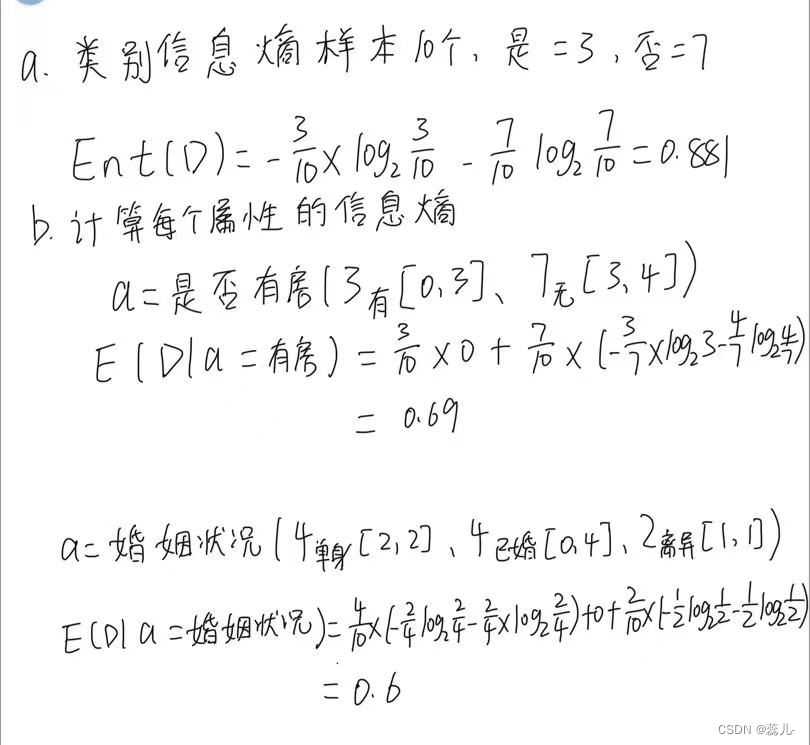 a. 类别信息熵样本10个, 是=3, 否=7
Ent(D)=-3/10×log₂3/10-7/10log₂7/10=0.881
b. 计算每个属性的信息熵
a=是否有房(3有[0,3]、7无[3,4])
E(D|a=有房)=3/10×0+7/10×(-3/7×log₂3-4/7log₂4/7)
=0.69
a=婚姻状况(4单身[2,2]、4已婚[0,4]、2离异[1,1])
E(D|a=婚姻状况)=4/10×(-2/4log₂2/4-2/4×log₂2/4)+0+2/10×(-1/2log₂1/2-1/2log₂1/2)
=0.6
CSDN @蕊儿-